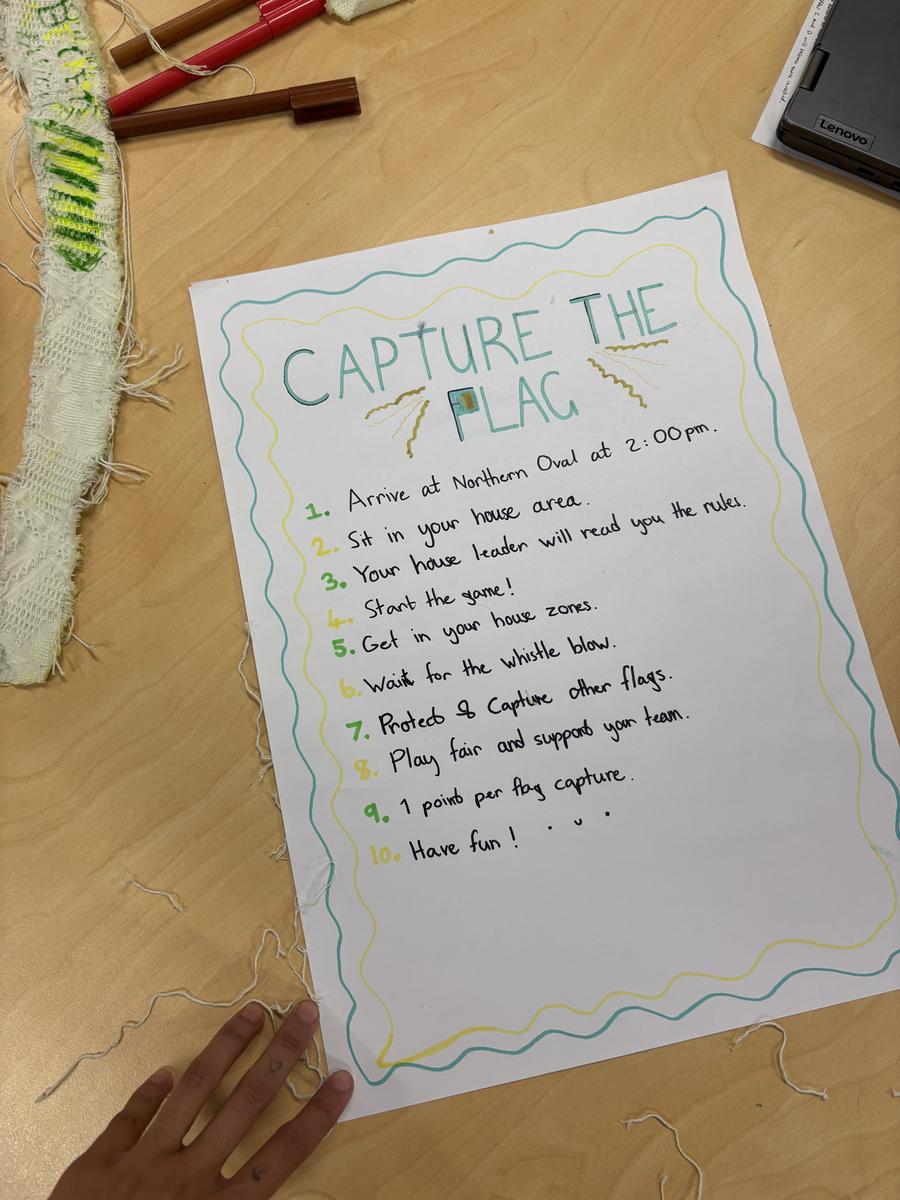 Lenovo
CAPTURE THE
FLAG
1. Arrive at Northern Oval at 2:00pm.
2. Sit in your house area.
3. Your house leader will read you the rules.
4. Start the game!
5. Get in your house zones.
6. Wait for the whistle blow.
7. Protect & Capture other flags.
8. Play fair and support your team.
9. 1 point per flag capture.
10. Have fun!